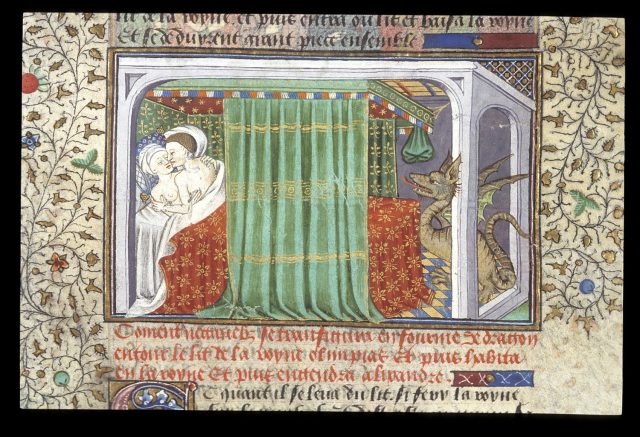 de la royne, et puis entra ou lit et baisa la royne
Et se deduyrent grant piece ensemble
Coment nectanebz se transfigura en fourme de dragon
entour le lit de la royne olimpias Et puis habita
en la royne Et puis engendra alixandre.
Et quant il se leva du lit, si fery la royne